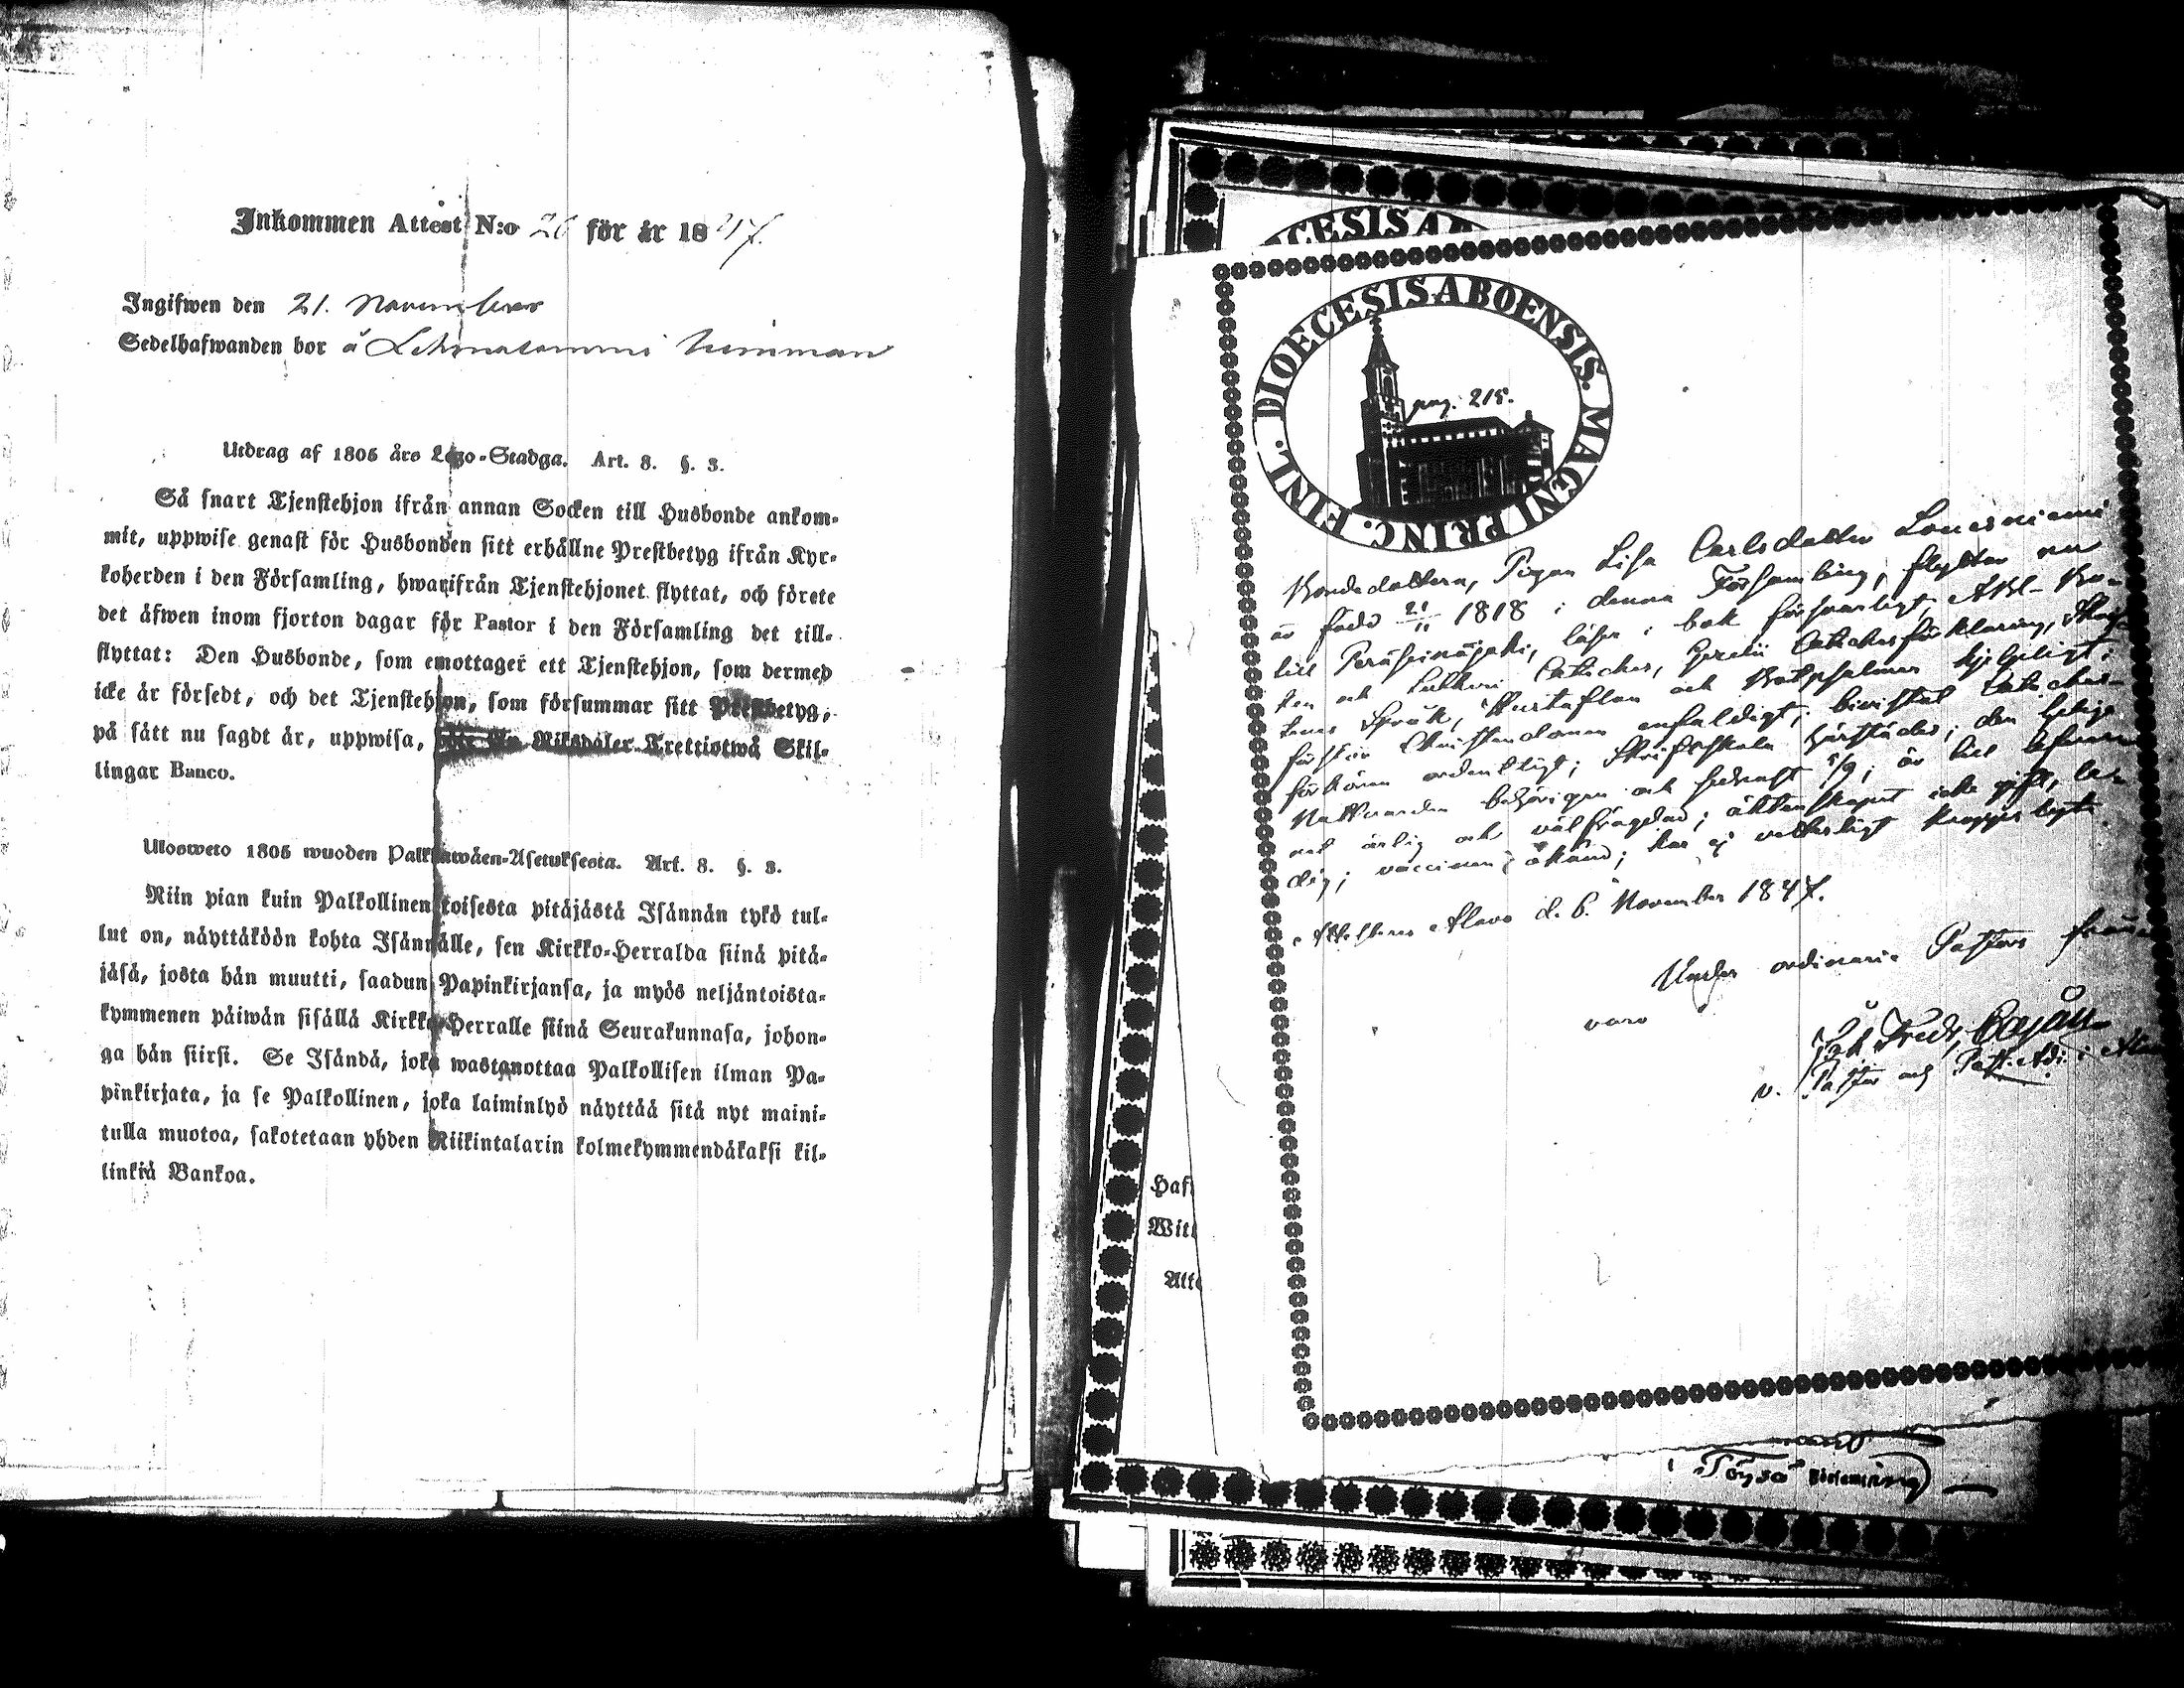 Inkommen Attest N:o 26 för år 1847.
Ingifwen den 21. November
Sedelhafwanden bor å Lehmatammi hemman
Utdrag af 1805 års Lego-Stadga. Art. 8. §. 3.
Så snart Tjenstehjon ifrån annan Socken till Husbonde ankom-
mit, uppwise genast för Husbonden sitt erhållne Prestbetyg ifrån Kyr-
koherden i den Församling, hwarifrån Tjenstehjonet flyttat, och förete
det äfwen inom fjorton dagar för Pastor i den Församling det till-
flyttat: Den Husbonde, som emottager ett Tjenstehjon, som dermed
icke är försedt, och det Tjenstehjon, som försummar sitt Prestbetyg,
på sätt nu sagdt är, uppwisa, Riksdaler Trettiotwå Skil-
lingar Banco.
Ulosweto 1805 wuoden Palkkawäen-Asetuksesta. Art. 8. §. 3.
Niin pian kuin Palkollinen toisesta pitäjästä Isännän tykö tul-
lut on, näyttäköön kohta Isännälle, sen Kirkko-Herralda siinä pitä-
jäsä, josta hän muutti, saadun Papinkirjansa, ja myös neljäntoista-
kymmenen päiwän sisällä Kirkko-Herralle siinä Seurakunnasa, johon-
ga hän siirsi. Se Isändä, joka wastanottaa Palkollisen ilman Pa-
pinkirjata, ja se Palkollinen, joka laiminlyö näyttää sitä nyt maini-
tulla muotoa, sakotetaan yhden Riikintalarin kolmekymmendäkaksi kil-
linkiä Bankoa.
DIOECESIS ABOENSIS. MAGNI PRINC. FINL.
pag. 215.
Bondedottern, Pigan Lisa Carlsdotter Louesniemi
är född 21/11 1818 i denna Församling, flyttar nu
till Peräseinäjoki, läser i bok försvarligt, ABC-Bo-
ken och Lutheri Cateches, Gezelii Catechesförklaring, Skrif-
tens Språk, Hustaflan och Botpsalmer hjelpligt;
förstår Christendomen enfaldigt; bevistat Cateches-
förhören ordentligt; Skriftskola härstädes; den heliga
Nattvarden behörigen och sednast 5/9; är till lefvernet
ärlig och välfrägdad; äktenskapet icke gift, le-
dig; vaccinen okänd; har ej vetterligt kroppslyte.
Attesteras Alavo d. 6. November 1847.
Under ordinarie Pastors från-
varo
Fredr. Cajan
v. Pastor och Past. Adj. i
Haf
Witt
Att
i Töysä Församling